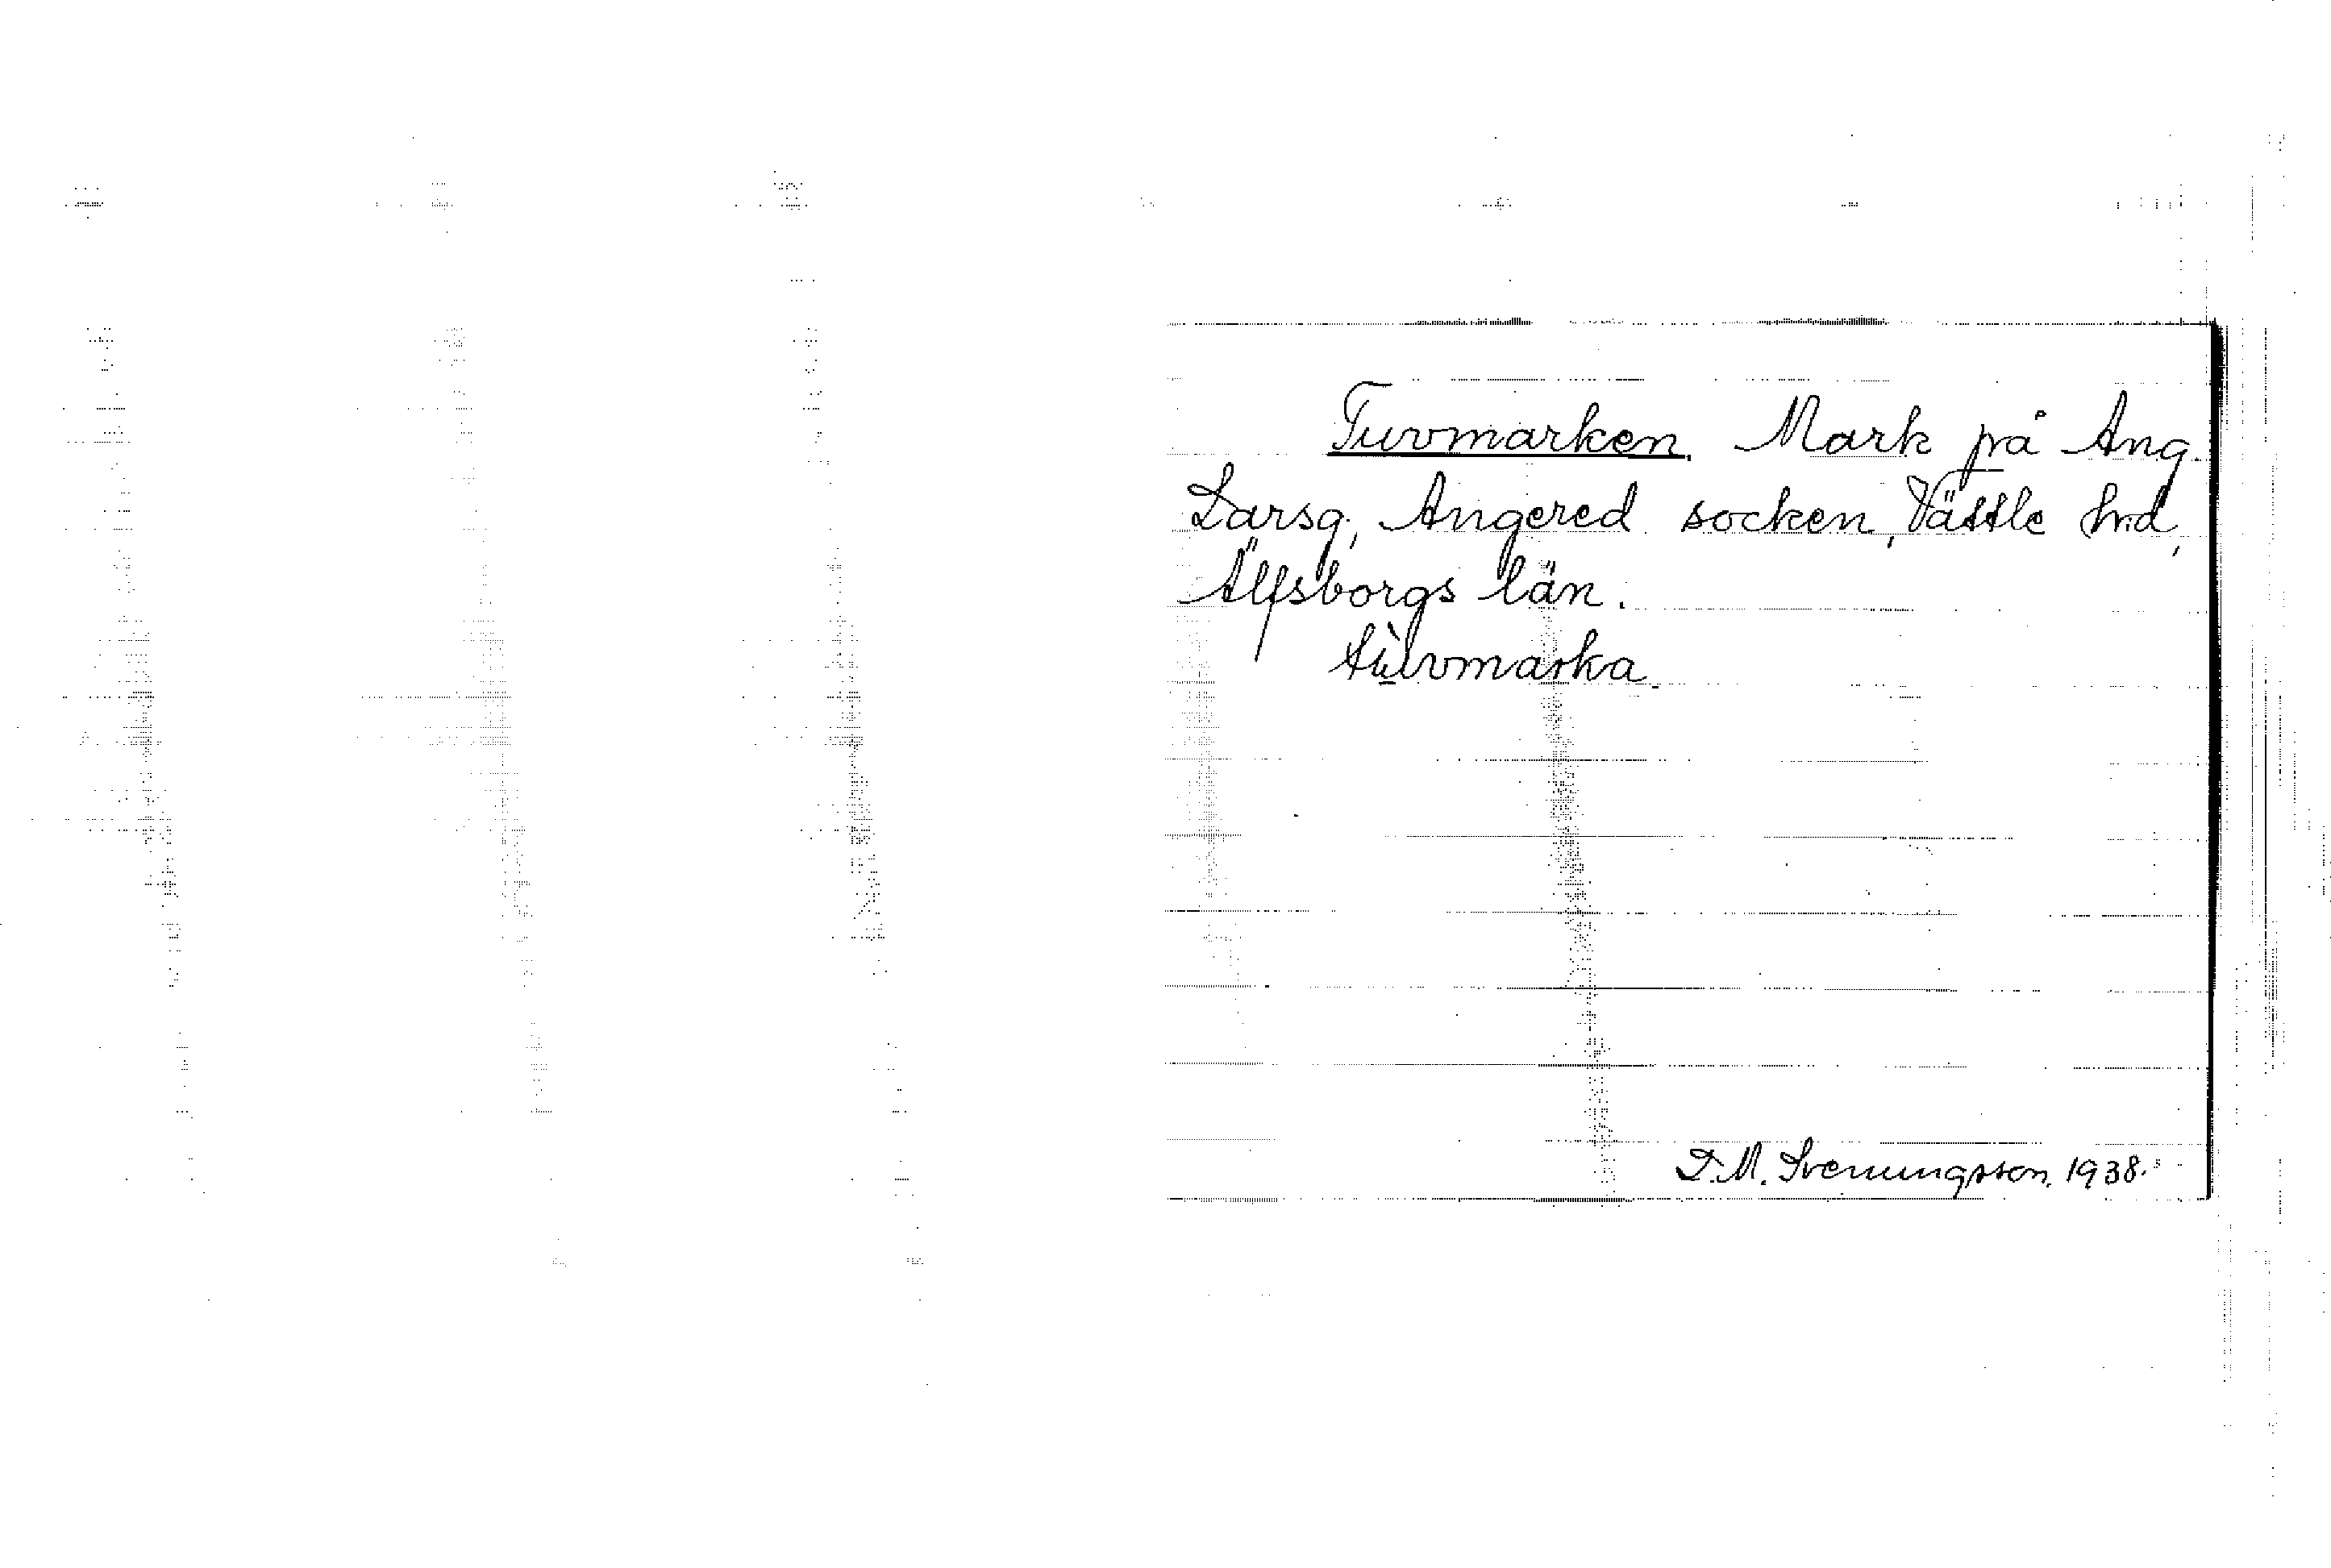 Tuvmarken. Mark på Ang.
Larsg, Angered socken, Vättle hrd,
Älfsborgs län.
tùvmarka
D.M. Svenungsson. 1938.